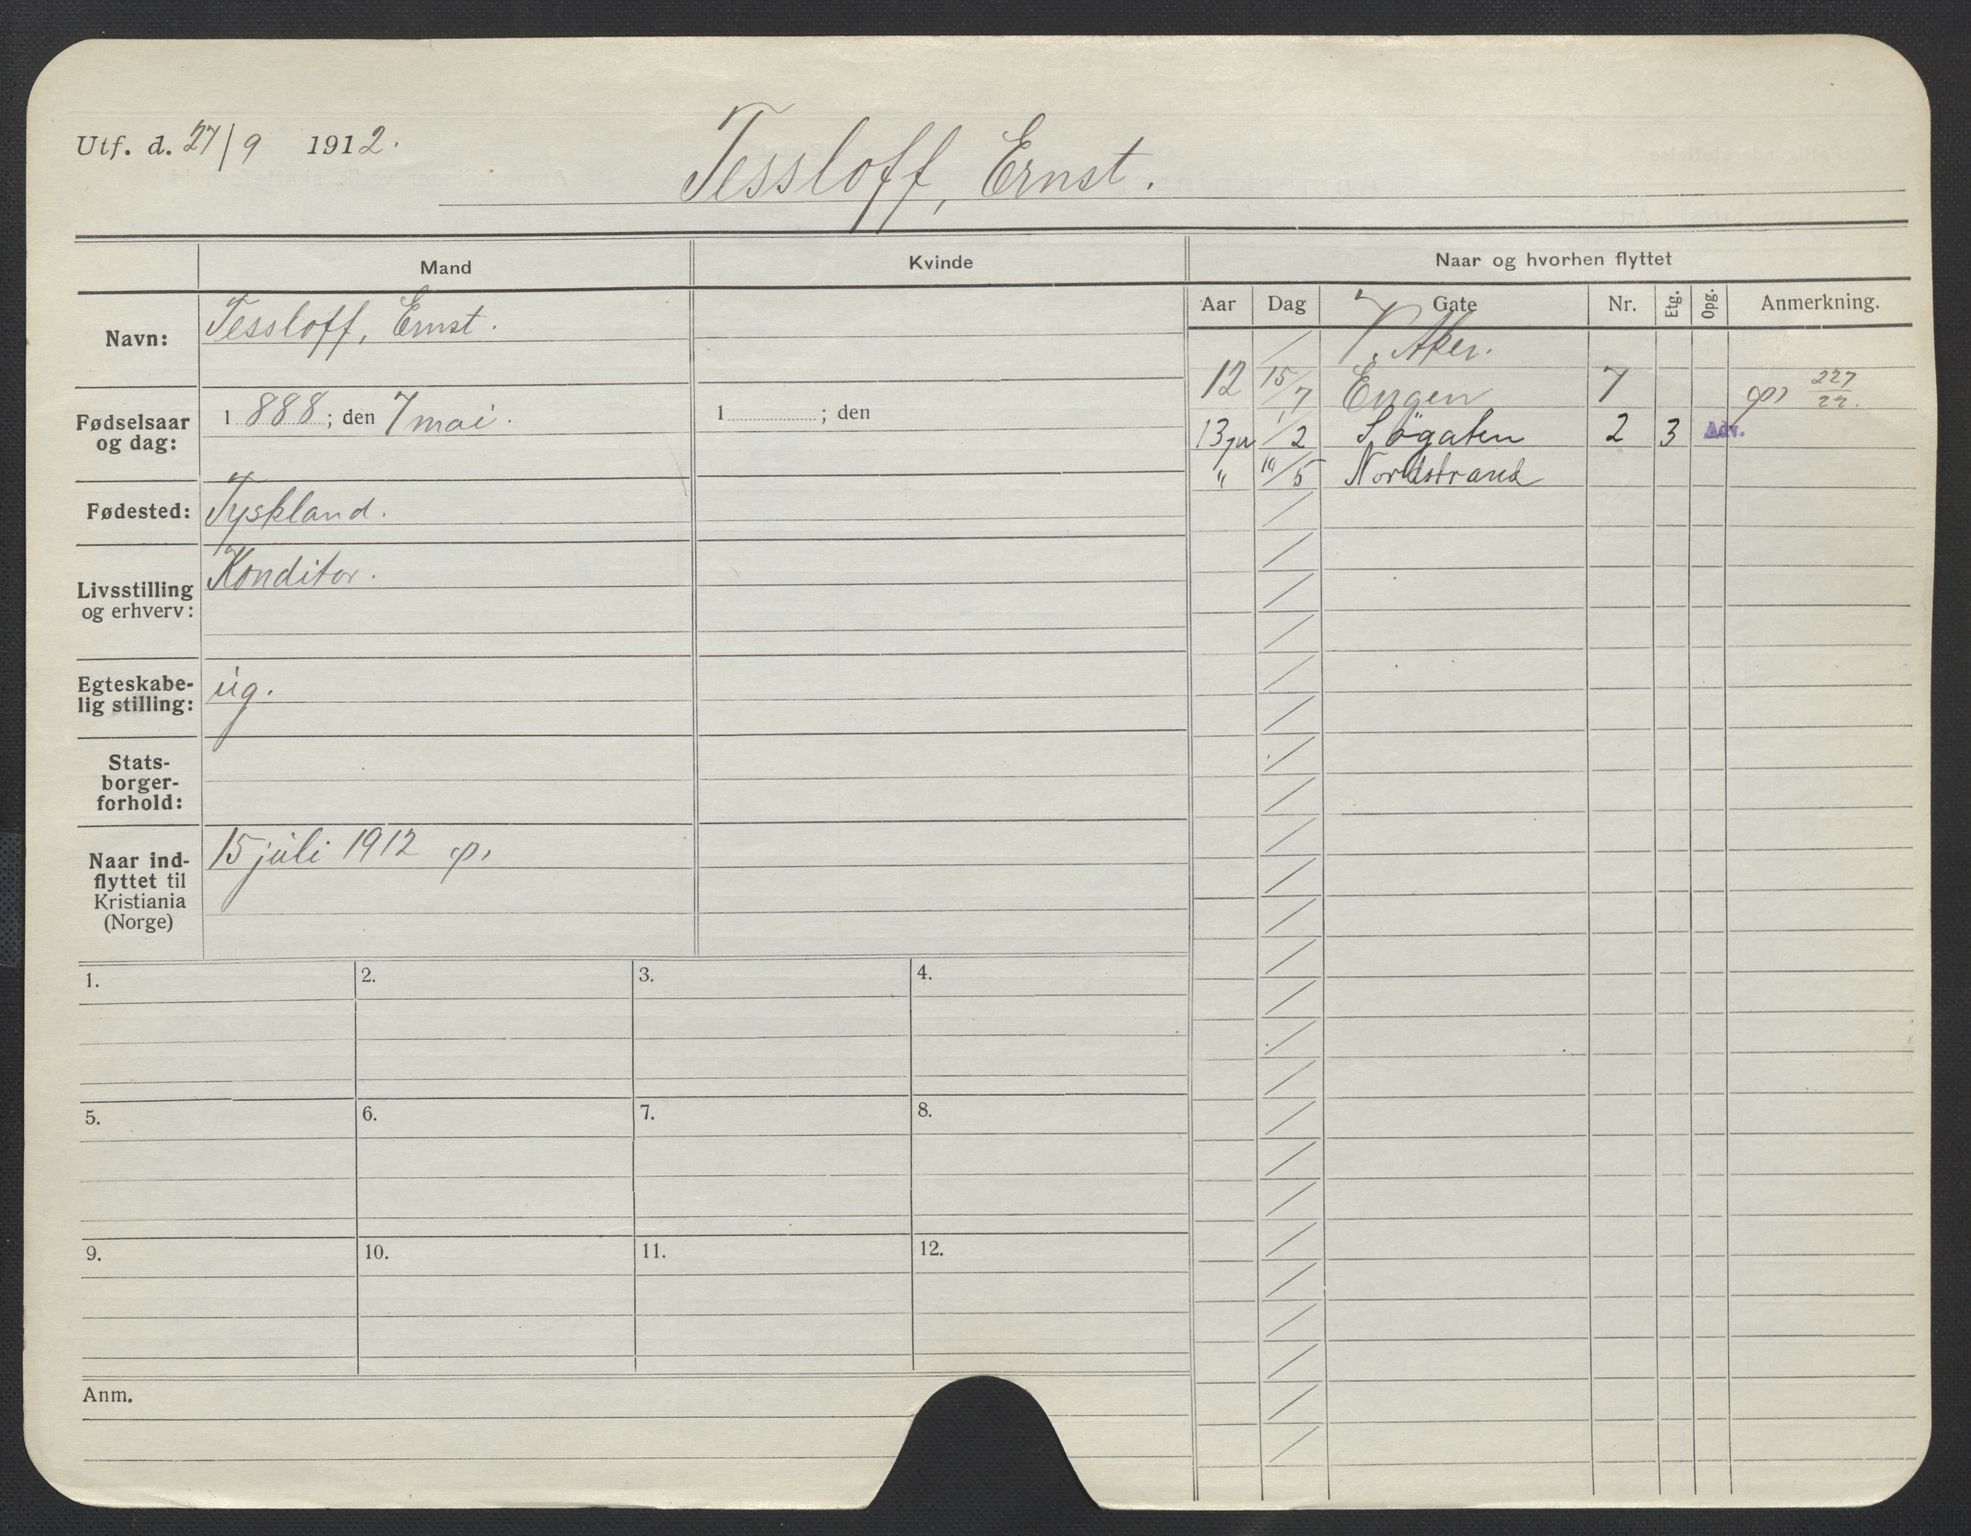 Utf. d. 27/9 1912.
Tessloff, Ernst.
Mand
Kvinde
Naar og hvorhen flyttet
Aar Dag Gate Nr. Etg. Opg. Anmerkning.
Navn: Tessloff, Ernst.
Fødselsaar og dag: 1888; den 7 mai. 1 ; den
Fødested: Tyskland.
Livsstilling og erhverv: Konditor.
Egteskabe-
lig stilling: ug.
Stats-
borger-
forhold:
Naar ind-
flyttet til
Kristiania
(Norge)
15 juli 1912
V. Aker.
12 15/7 Engen 7 227/22.
13 1/2 Søgaten 2 3 Adv.
" 19/5 Nordstrand
1. 2. 3. 4.
5. 6. 7. 8.
9. 10. 11. 12.
Anm.